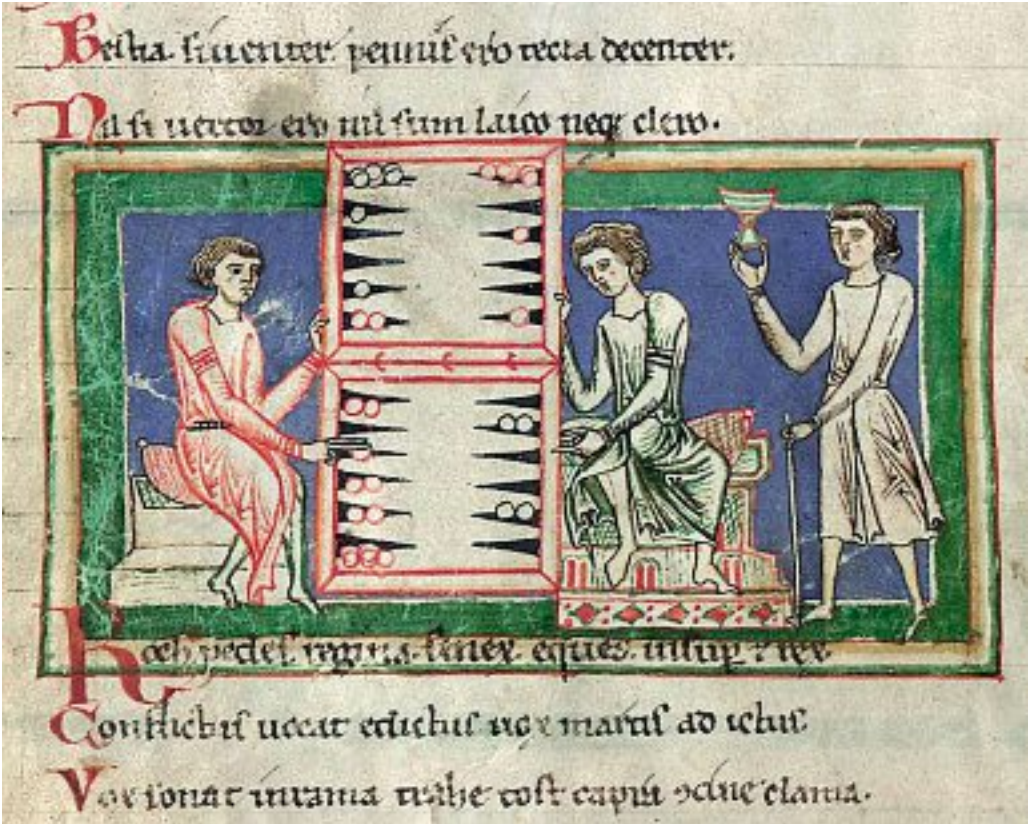 Bestia. si uenter. pennis ero tecta decenter.
Nil si uertor ero nil sum laico neq; clero.
Roch pedes. regina. senex. eques. insup ⁊ rex
Conflictus uocat edictus uos martis ad ictus
Vox sonat inrama trahe tost ꝯcine clama.